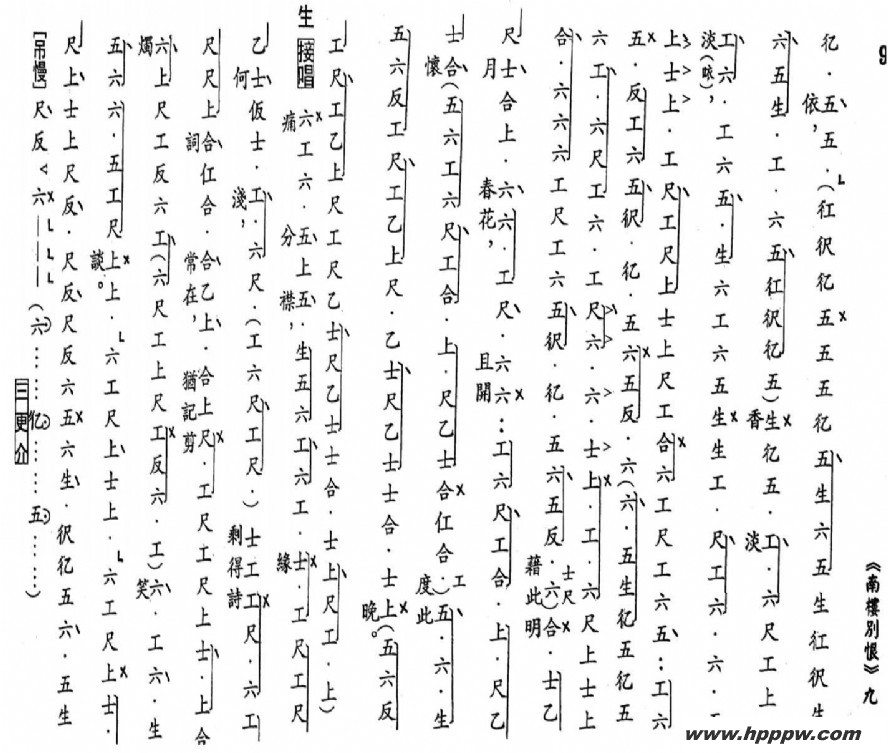 9
《南樓別恨》九
亿．五五．（仜伬亿五五五亿五生六五生仜伬生
依，
六五生．工．六五仜伬亿五）生亿五．工．六尺工上
香 淡
工六．工六五．生六工六五生生工．尺工六．六．工
淡（咳），
上士上．工尺工尺上士上尺工合六工尺工六五：工六
五．反工六五伬．亿．五六五反．六（六．五生亿五亿五
六工．六尺工六．工尺六．六．士上．工．六尺上士上
合．六六六工尺工六五伬．亿．五六五反．六）合．士乙
士尺
藉此明
尺士合上．六六．工尺．六六：工六尺工合．上．尺乙
月 春花， 且開
士合（五六工六尺工合．上．尺乙士合仜合．）五．六．生
懷 工 度此
五六反工尺工乙上尺．乙士尺乙士士合．士上（五六反
晚。
工尺工乙上尺工尺乙士尺乙士士合．士上尺工．上）
生 接唱
六工六．五上五．生五六工六工．士．工尺工尺
痛 分 襟， 緣
乙士仮士．工．六尺．（工六尺工尺．）士工工尺．六工
何 淺， 剩得詩
尺尺上合仜合．合乙上．合上尺．工尺工尺上士．上合
詞 常在， 猶記剪
六上尺工反六工（六尺工上尺工反六．工）六．工六．生
燭 笑
五六六．五工尺上上．六工尺上士上．六工尺上士．
談。
尺上士上尺反．尺反尺反六五六生．伬亿五六．五生
［吊慢］尺反＜六———（六……亿……五……）
三更介
www.hpppw.com